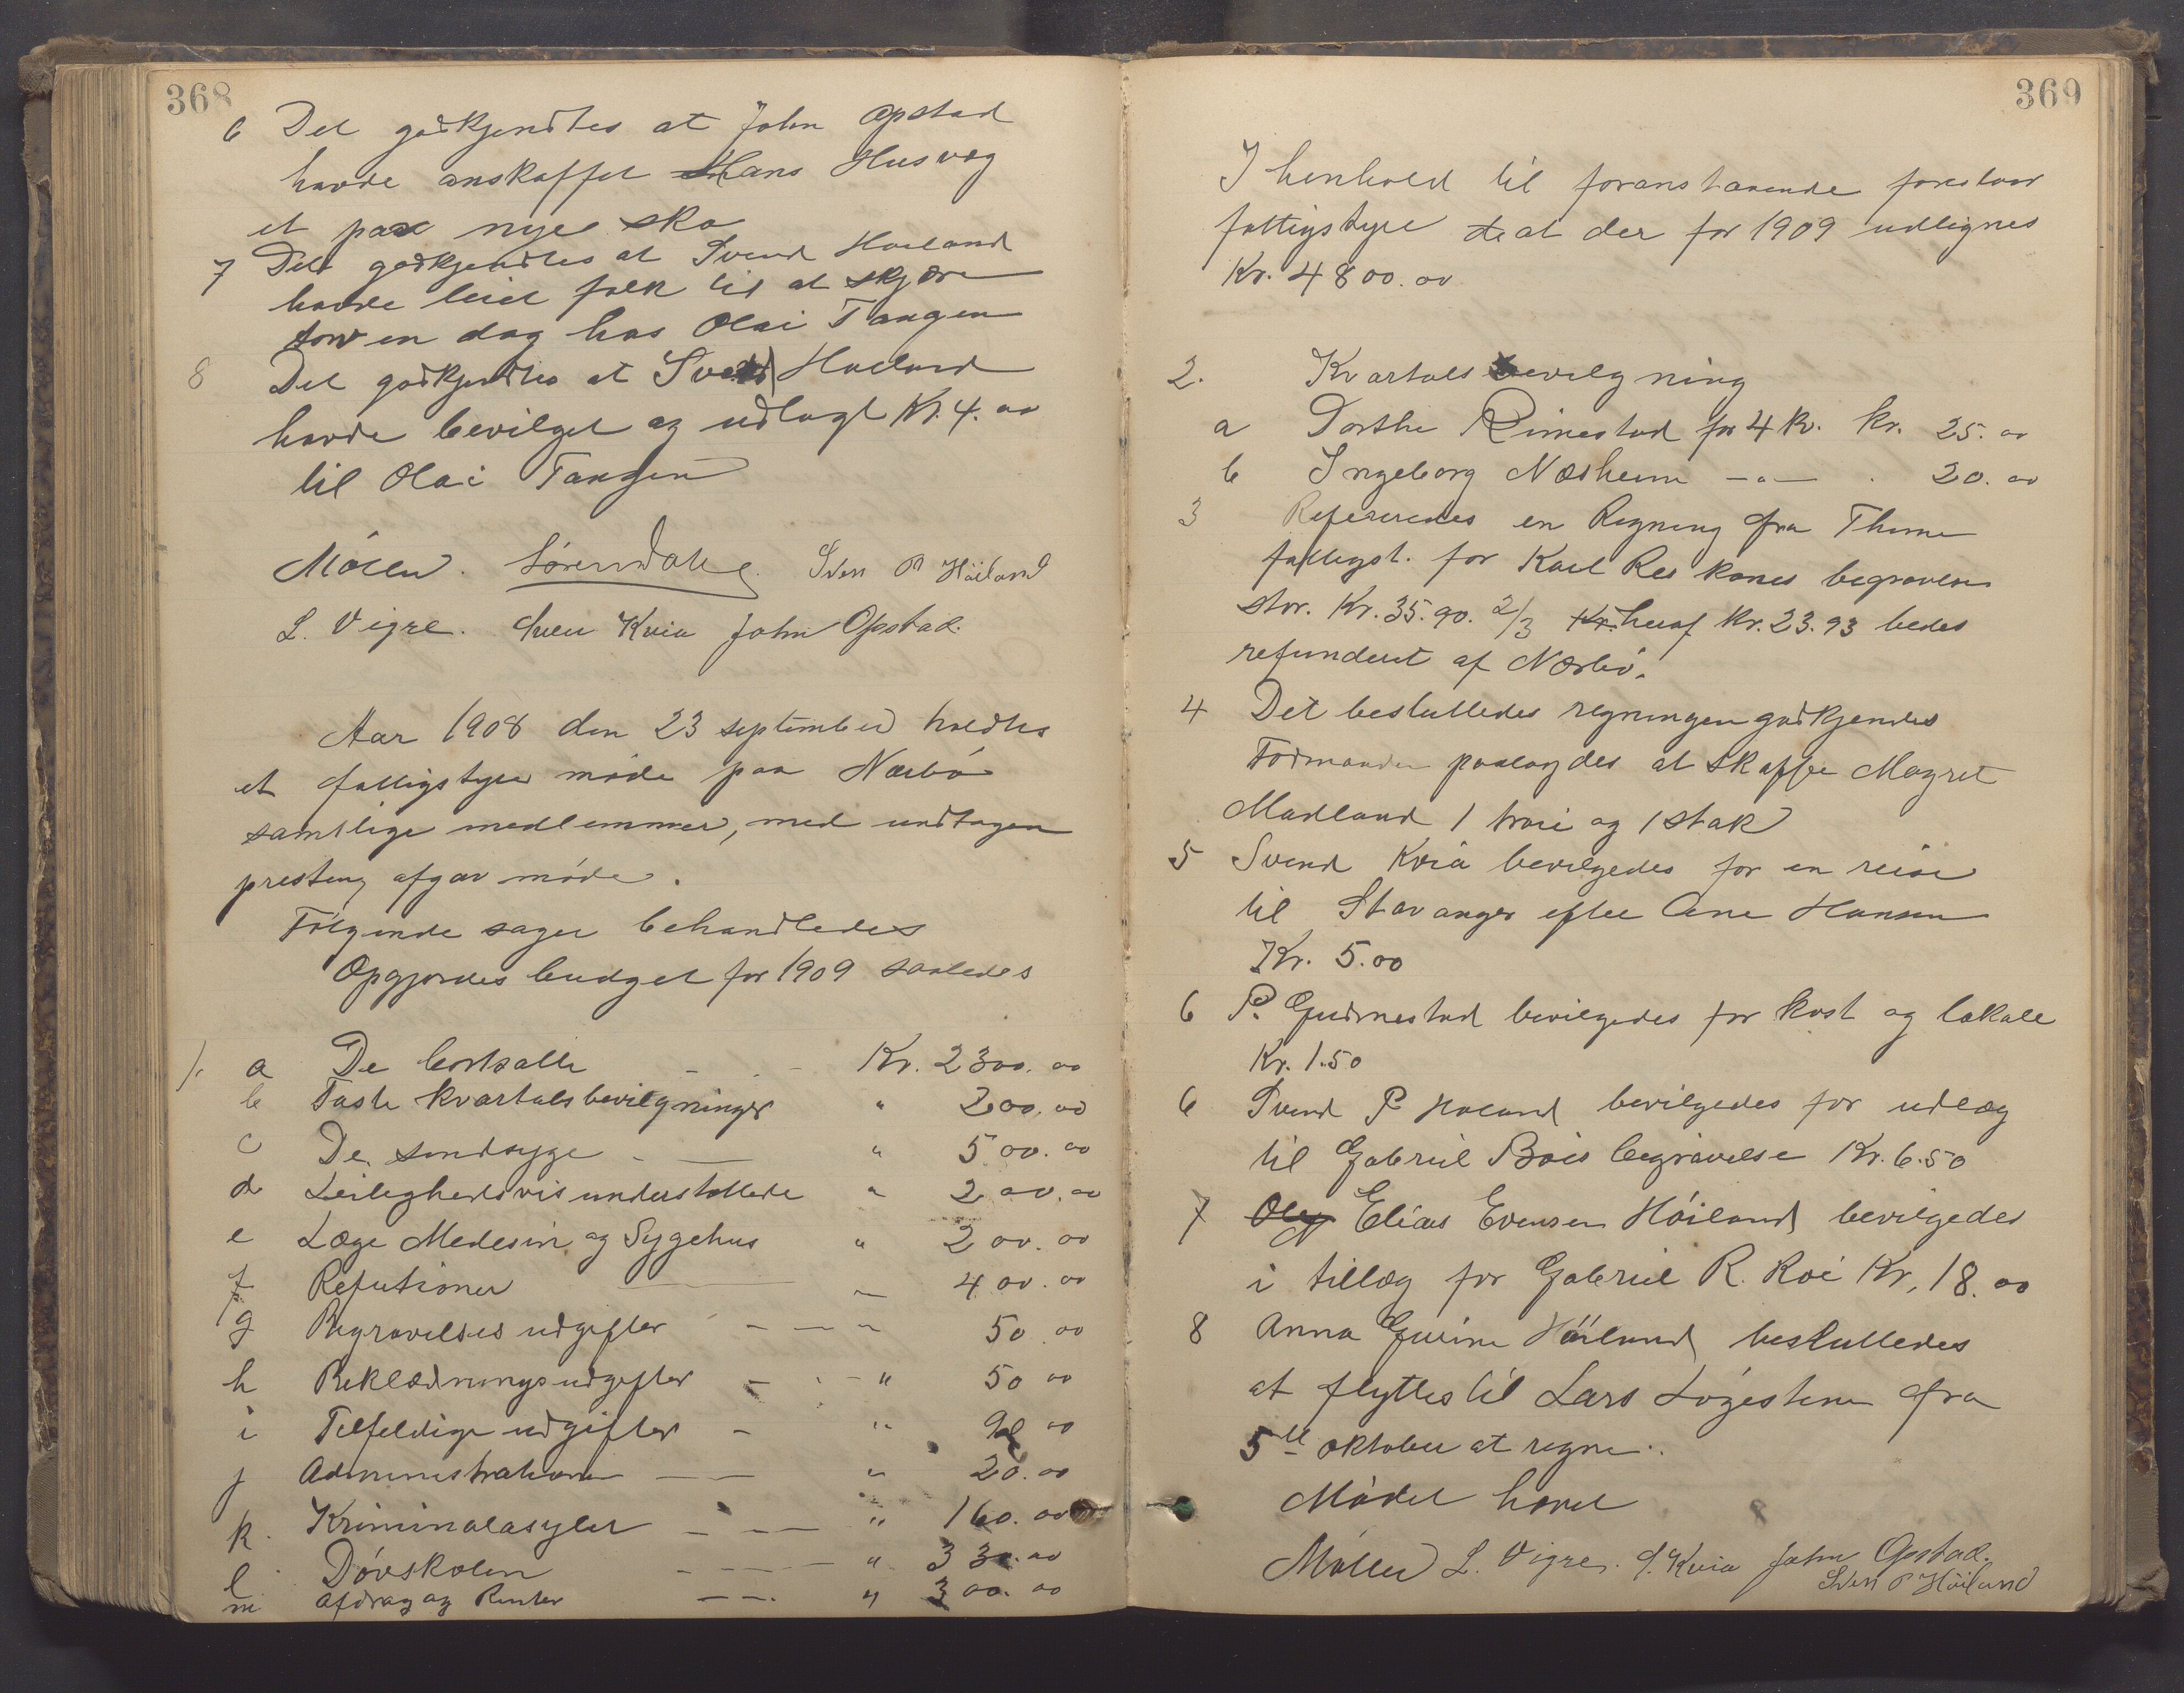 368
6 Det godkjendtes at John Opstad
havde anskaffet Hans Husvæg
et par nye sko
7 Det godkjendtes at Svend Høiland
havde leiet folk til at skjære
torv en dag hos Olai Tangen
8 Det godkjendtes at Svend Høiland
havde bevilget og udlagt Kr. 4.00
til Olai Tangen
Möller. Sören Dahle. Sven P Höiland
L. Vigre. Sven Kvia John Opstad.
Aar 1908 den 23 september holdtes
et fattigstyre møde paa Nærbø
samtlige medlemmer, med undtagen
presten afgav møde.
Følgende sager behandledes
Opgjordes budget for 1909 saaledes
1. a De bortsatte Kr. 2300.00
b Faste kvartalsbevilgninger " 200.00
c De sindsyge - " 500.00
d Leilighedsvis understøttede " 200.00
e Læge Medesin og Sygehus " 200.00
f Refutioner — 400.00
g Begravelses udgifter - — - 50.00
h Beklædningsudgifter - - - " 50 00
i Tilfeldige udgifter - " 90 00
j Administration — — " 20.00
k. Kriminalasylet — - — " 160.00
l Døvskolen - — - " 330.00
m afdrag og Renter — — . " 300.00
369
I henhold til foranstaaende foreslaar
fattigstyre de at der for 1909 udlignes
Kr. 4800.00
2. Kvartals bevilgning
a Dorthe Rimestad for 4 k. kr. 25.00
b Ingeborg Næsheim -"- . 20.00
3 Refereredes en Regning fra Thime
fattigst. for Karl Res kones begravelse
stor. Kr. 35.90. 2/3 Kr. heraf Kr. 23.93 bedes
refunderet af Nærbø.
4 Det besluttedes regningen godkjendes
Formanden paalagdes at skaffe Magret
Madland 1 trøie og 1 stak
5 Svend Kvia bevilgedes for en reise
til Stavanger efter Ane Hansen
Kr. 5.00
6 P. Gudmestad bevilgedes for kost og lokale
Kr. 1.50
6 Svend P Høiland bevilgedes for udlæg
til Gabriel Rois begravelse Kr. 6.50
7 Elias Evensen Höiland bevilgedes
i tillæg for Gabriel R. Roi Kr. 18.00
8 Anna Gurine Höiland besluttedes
at flyttes til Lars Løgesten fra
5te oktober at regne.
Mødet hævet
Möller L. Vigre. S. Kvia John Opstad.
Sven P Höiland